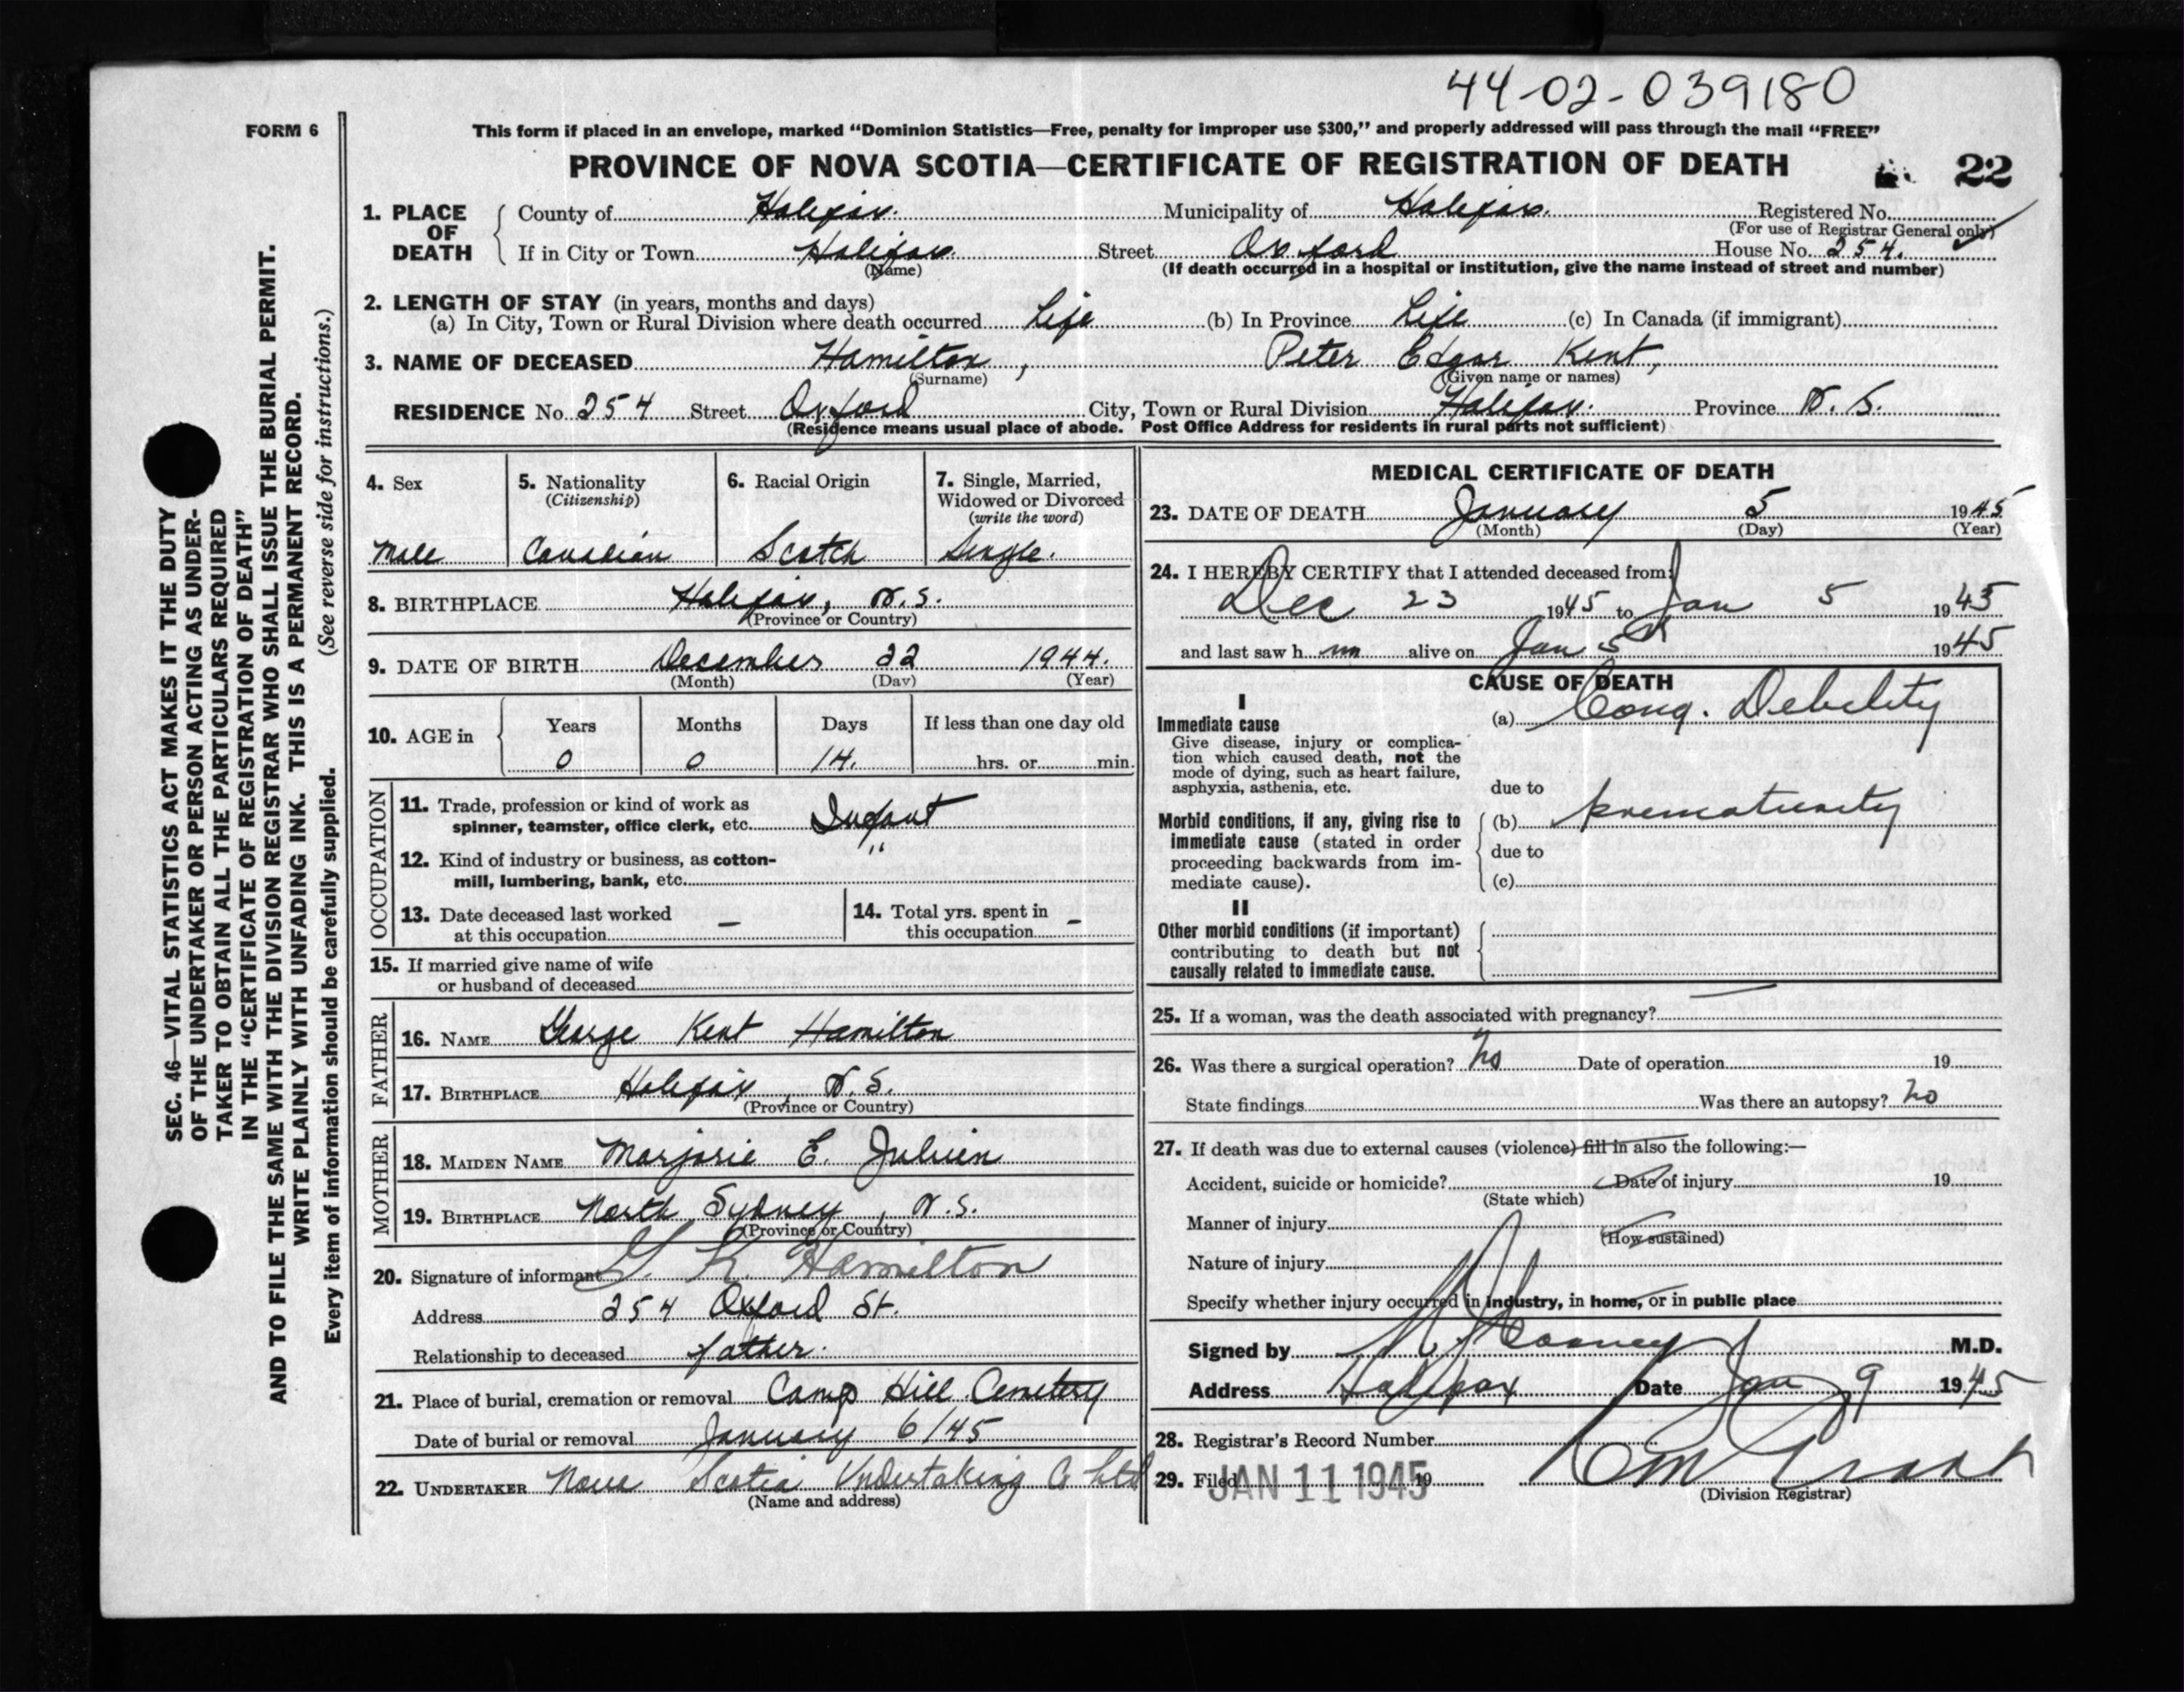 44-02-039180
FORM 6
This form if placed in an envelope, marked “Dominion Statistics—Free, penalty for improper use $300,” and properly addressed will pass through the mail “FREE”
PROVINCE OF NOVA SCOTIA—CERTIFICATE OF REGISTRATION OF DEATH 22
1. PLACE OF DEATH
County of Halifax. Municipality of Halifax. Registered No.
(For use of Registrar General only)
If in City or Town Halifax. Street Oxford House No. 254.
(Name) (If death occurred in a hospital or institution, give the name instead of street and number)
2. LENGTH OF STAY (in years, months and days)
(a) In City, Town or Rural Division where death occurred Life (b) In Province Life (c) In Canada (if immigrant)
3. NAME OF DECEASED Hamilton, Peter Edgar Kent,
(Surname) (Given name or names)
RESIDENCE No. 254 Street Oxford City, Town or Rural Division Halifax. Province N. S.
(Residence means usual place of abode. Post Office Address for residents in rural parts not sufficient)
4. Sex
Male
5. Nationality
(Citizenship)
Canadian
6. Racial Origin
Scotch
7. Single, Married,
Widowed or Divorced
(write the word)
Single.
8. BIRTHPLACE Halifax, N.S.
(Province or Country)
9. DATE OF BIRTH December 22 1944.
(Month) (Day) (Year)
10. AGE in
Years Months Days If less than one day old
0 0 14. hrs. or min.
OCCUPATION
11. Trade, profession or kind of work as
spinner, teamster, office clerk, etc. Infant
12. Kind of industry or business, as cotton-
mill, lumbering, bank, etc. "
13. Date deceased last worked
at this occupation —
14. Total yrs. spent in
this occupation –
15. If married give name of wife
or husband of deceased
FATHER
16. NAME George Kent Hamilton
17. BIRTHPLACE Halifax N.S.
(Province or Country)
MOTHER
18. MAIDEN NAME Marjorie E. Julien
19. BIRTHPLACE North Sydney, N.S.
(Province or Country)
20. Signature of informant G. K. Hamilton
Address 254 Oxford St.
Relationship to deceased father.
21. Place of burial, cremation or removal Camp Hill Cemetery
Date of burial or removal January 6/45
22. UNDERTAKER Nova Scotia Undertaking Co Ltd
(Name and address)
MEDICAL CERTIFICATE OF DEATH
23. DATE OF DEATH January 5 1945
(Month) (Day) (Year)
24. I HEREBY CERTIFY that I attended deceased from:
Dec 23 1945 to Jan 5 1945
and last saw h im alive on Jan 5th 1945
CAUSE OF DEATH
I
Immediate cause
Give disease, injury or complica-
tion which caused death, not the
mode of dying, such as heart failure,
asphyxia, asthenia, etc.
(a) Cong. Debility
due to
Morbid conditions, if any, giving rise to
immediate cause (stated in order
proceeding backwards from im-
mediate cause).
(b) prematurity
due to
(c)
II
Other morbid conditions (if important)
contributing to death but not
causally related to immediate cause.
25. If a woman, was the death associated with pregnancy?
26. Was there a surgical operation? No Date of operation 19
State findings Was there an autopsy? No
27. If death was due to external causes (violence) fill in also the following:—
Accident, suicide or homicide? Date of injury 19
(State which)
Manner of injury
(How sustained)
Nature of injury
Specify whether injury occurred in industry, in home, or in public place
Signed by M.D.
Address Halifax Date Jan 9 1945
28. Registrar's Record Number
29. Filed JAN 11 1945 19
(Division Registrar)
SEC. 46—VITAL STATISTICS ACT MAKES IT THE DUTY
OF THE UNDERTAKER OR PERSON ACTING AS UNDER-
TAKER TO OBTAIN ALL THE PARTICULARS REQUIRED
IN THE “CERTIFICATE OF REGISTRATION OF DEATH”
AND TO FILE THE SAME WITH THE DIVISION REGISTRAR WHO SHALL ISSUE THE BURIAL PERMIT.
WRITE PLAINLY WITH UNFADING INK. THIS IS A PERMANENT RECORD.
Every item of information should be carefully supplied. (See reverse side for instructions.)